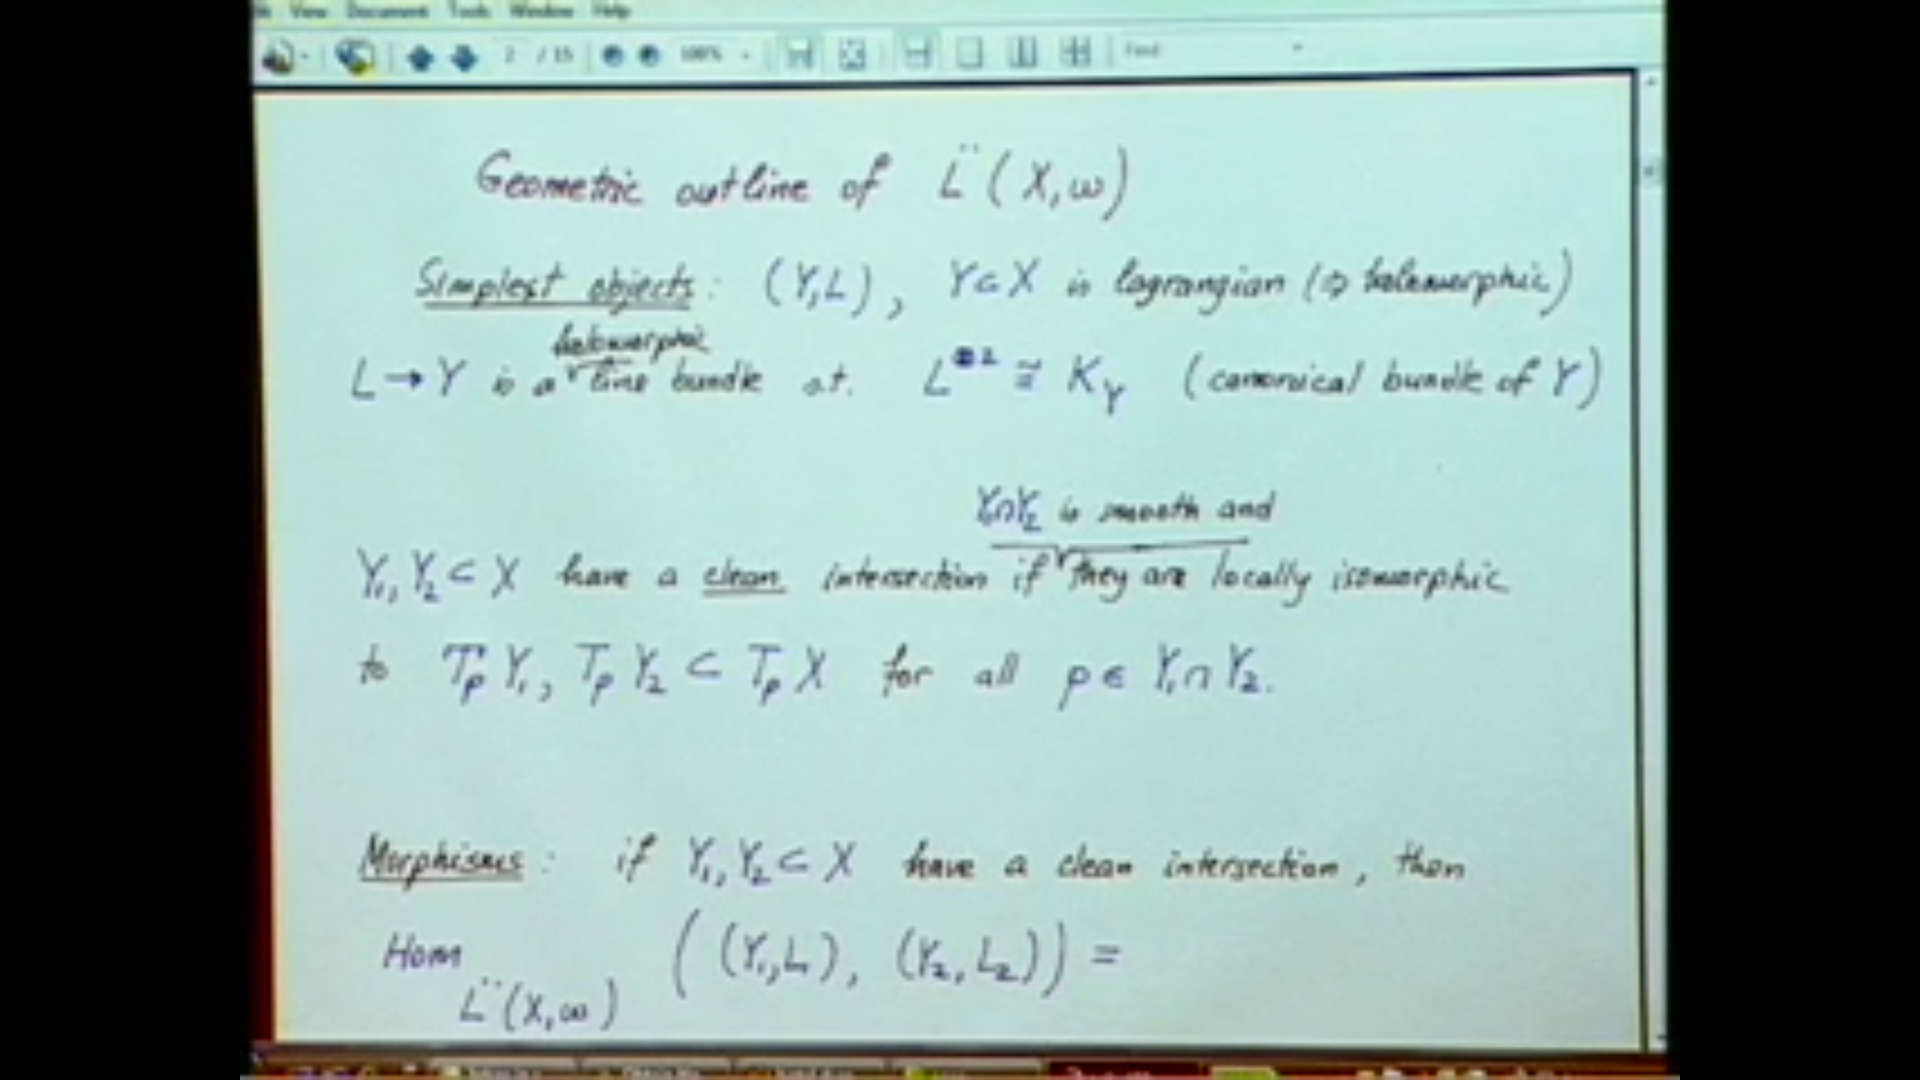 View Document Tools Window Help
2 / 15 100% Find
Geometric outline of L̈ (X, ω)
Simplest objects: (Y, L), Y ⊂ X is lagrangian (⇒ holomorphic)
holomorphic
L → Y is a line bundle s.t. L^⊗2 ≅ K_Y (canonical bundle of Y)
Y₁∩Y₂ is smooth and
Y₁, Y₂ ⊂ X have a clean intersection if they are locally isomorphic
to T_p Y₁, T_p Y₂ ⊂ T_p X for all p ∈ Y₁∩Y₂.
Morphisms: if Y₁, Y₂ ⊂ X have a clean intersection, then
Hom_L̈(X, ω) ((Y₁, L₁), (Y₂, L₂)) =